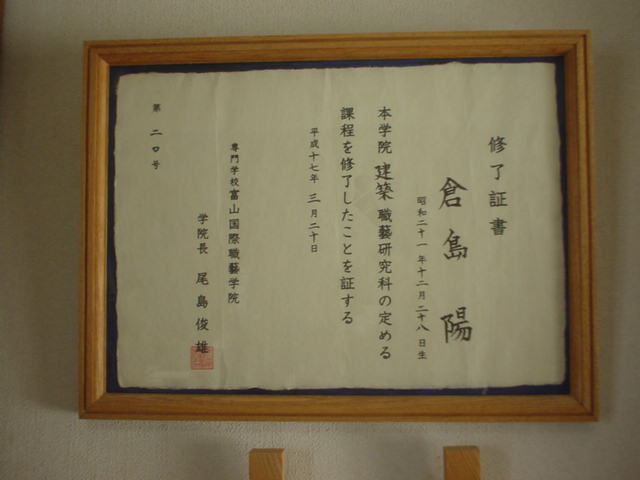 修了証書
倉島陽
昭和二十一年十二月二十八日生
本学院建築職藝研究科の定める
課程を修了したことを証する
平成十七年三月二十日
専門学校富山国際職藝学院
学院長 尾島俊雄
第二〇号